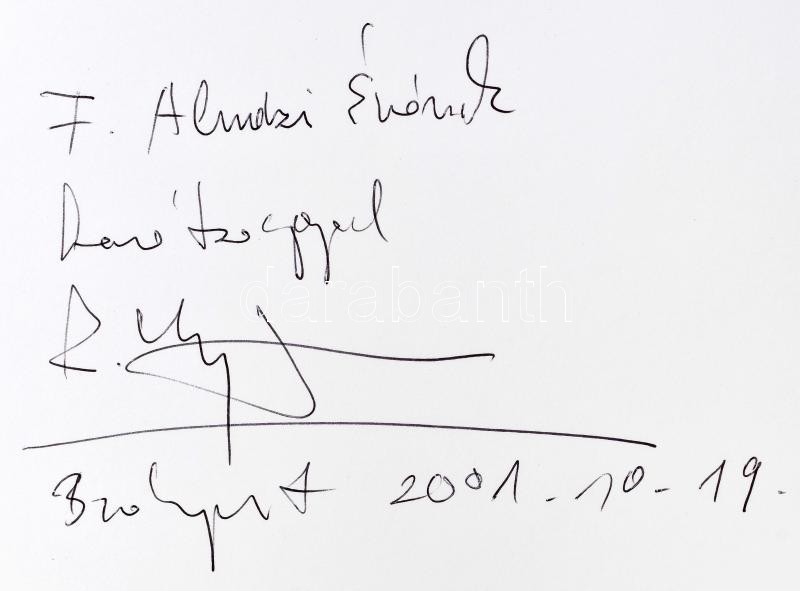 F. Almási Évának
barátsággal
R.
Budapest 2001-10-19.
darabanth